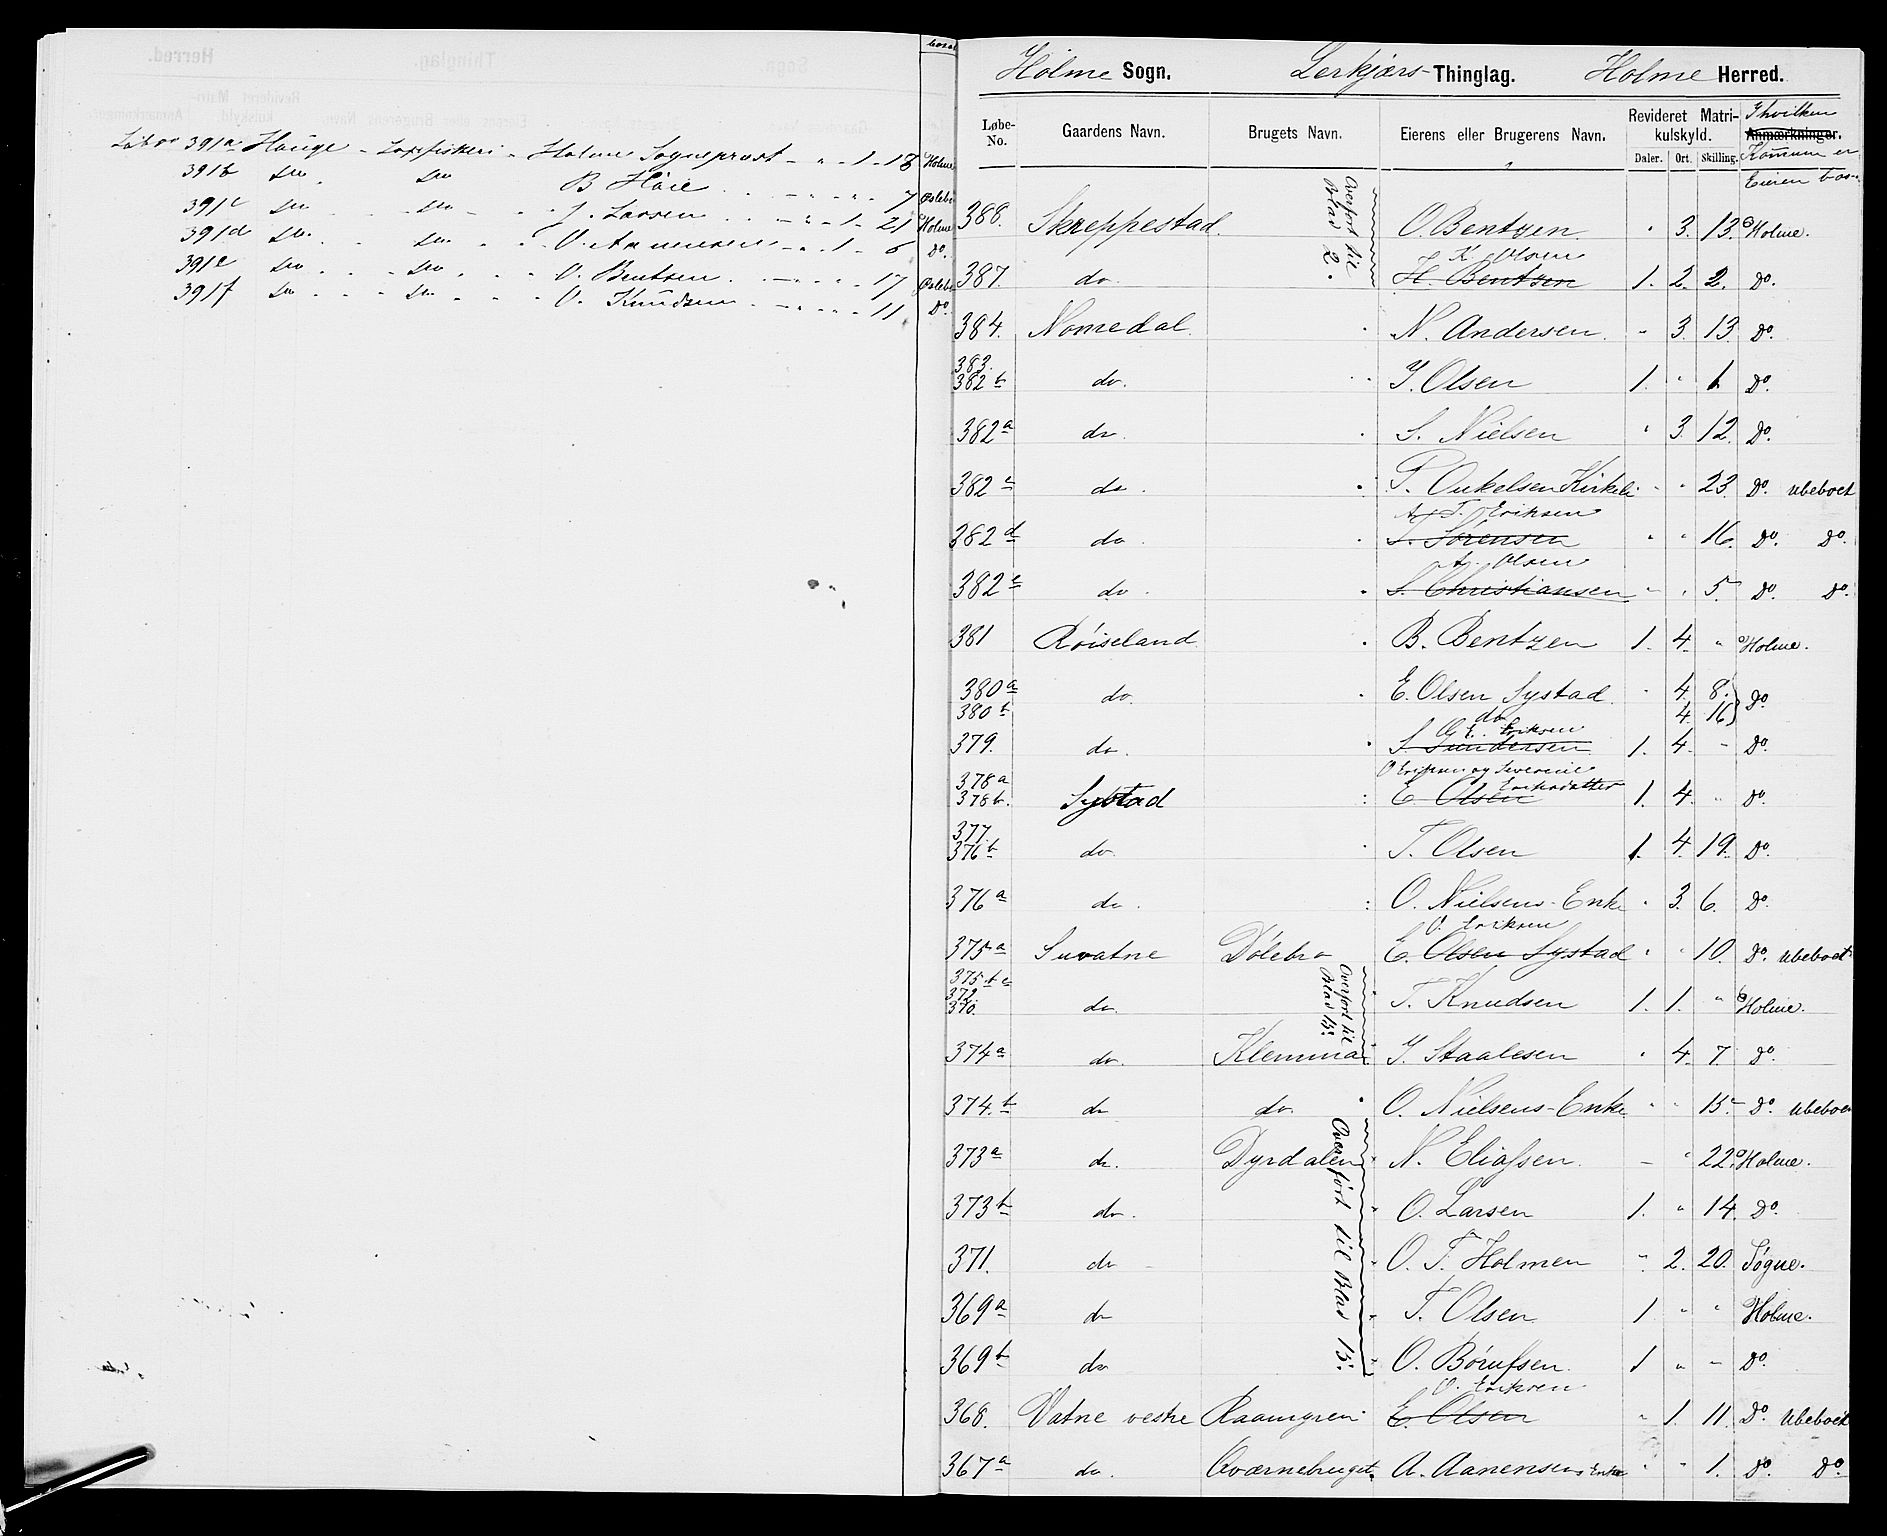 Løb. no 391a Hauge - Laxfiskeri - Holme Sogneprest - " - 1 - 18 Holme
391b do do B Høie - " - " - 7 Øslebø
391c do do J. Larsen - " - 1 - 21 Holme
391d do do O. Aanensen - " - 1 - 6 Do.
391e do do O. Bentsen - " - " - 17 Øslebø
391f do do O. Knudsen - " - " - 11 Do.
bosat
Holme Sogn. Lerkjærs Thinglag. Holme Herred.
Løbe-No. Gaardens Navn. Brugets Navn. Eierens eller Brugerens Navn. Revideret Matrikulskyld. Daler. Ort. Skilling. Anmærkninger. I hvilken Kommune er Eieren bos-
388. Skreppestad. O. Bentzen. " 3. 13. Holme.
Overført til Blad 2.
K. Olsen
387. do. H. Bentzen 1. 2. 2. Do.
384. Nomedal. N. Andersen. " 3. 13. Do.
383. 382b do. Y. Olsen 1. " 1. Do.
382a do. S. Nielsen " 3. 12. Do.
382c do. T. Onkelsen Kirkeli " " 23. Do. ubeboet
T. Eriksen
382d do. S. Sørensen " " 16. Do. Do.
A. Olsen
382e do. S. Christiansen " " 5. Do. Do.
381 Røiseland. B. Bentzen 1. 4. " Holme.
380a do. E. Olsen Systad. " 4. 8. Do
380b do 4. 16
O. E. Eriksen
379. do. S. Gundersen 1. 4. " Do.
O Eriksen og Severine Eriksdatter
378a 378b. Systad E. Olsen 1. 4. " Do.
377. 376b do. T. Olsen 1. 4. 19. Do.
376a do. O. Nielsens Enke " 3. 6. Do.
O. Eriksen
375a Suvatne Dølebro E. Olsen Systad " " 10. Do. ubeboet
375b c 372. 370. do. T. Knudsen 1. 1. " Holme.
Overført til Blad 15.
374a do. Klemma Y. Staalesen " 4. 7. Do.
374b do do. O. Nielsens Enke " " 15. Do. ubeboe
373a do. Dyrdalen N. Eliassen. " " 22. Holme.
Overført til Blad 15.
373b do. O. Larsen 1. " 14. Do.
371. do O. T. Holmen " 2. 20. Søgne.
369a do T. Olsen 1 " " Holme.
369b do O. Børufsen. 1 " " Do.
O. Eriksen
368. Vatne vestre Raamyren E. Olsen " 1. 11. Do. ubeboet
367a do. Qværnebruget. A. Aanensens Enke " " 1. Do. Do.